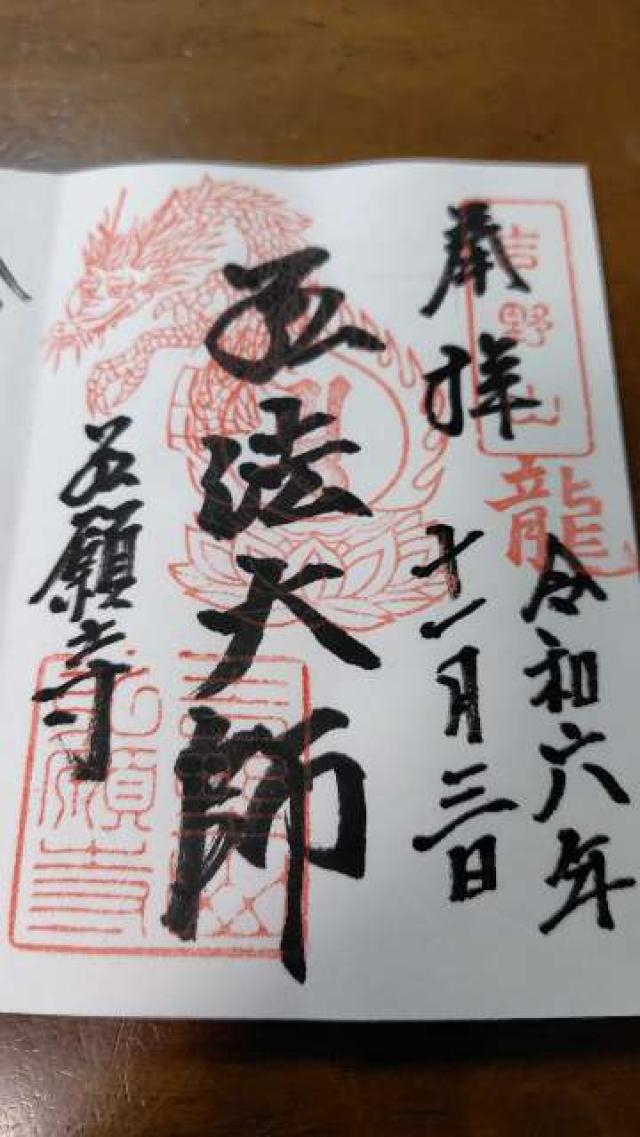 吉野山
龍
奉拝
令和六年
十一月三日
弘法大師
弘願寺
弘願寺